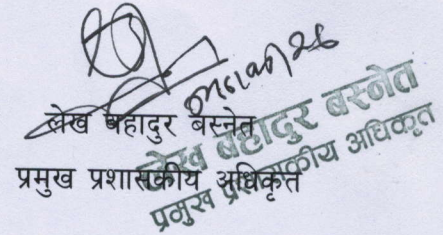 लेख बहादुर बस्नेत
प्रमुख प्रशासकीय अधिकृत
लेख बहादुर बस्नेत
प्रमुख प्रशासकीय अधिकृत